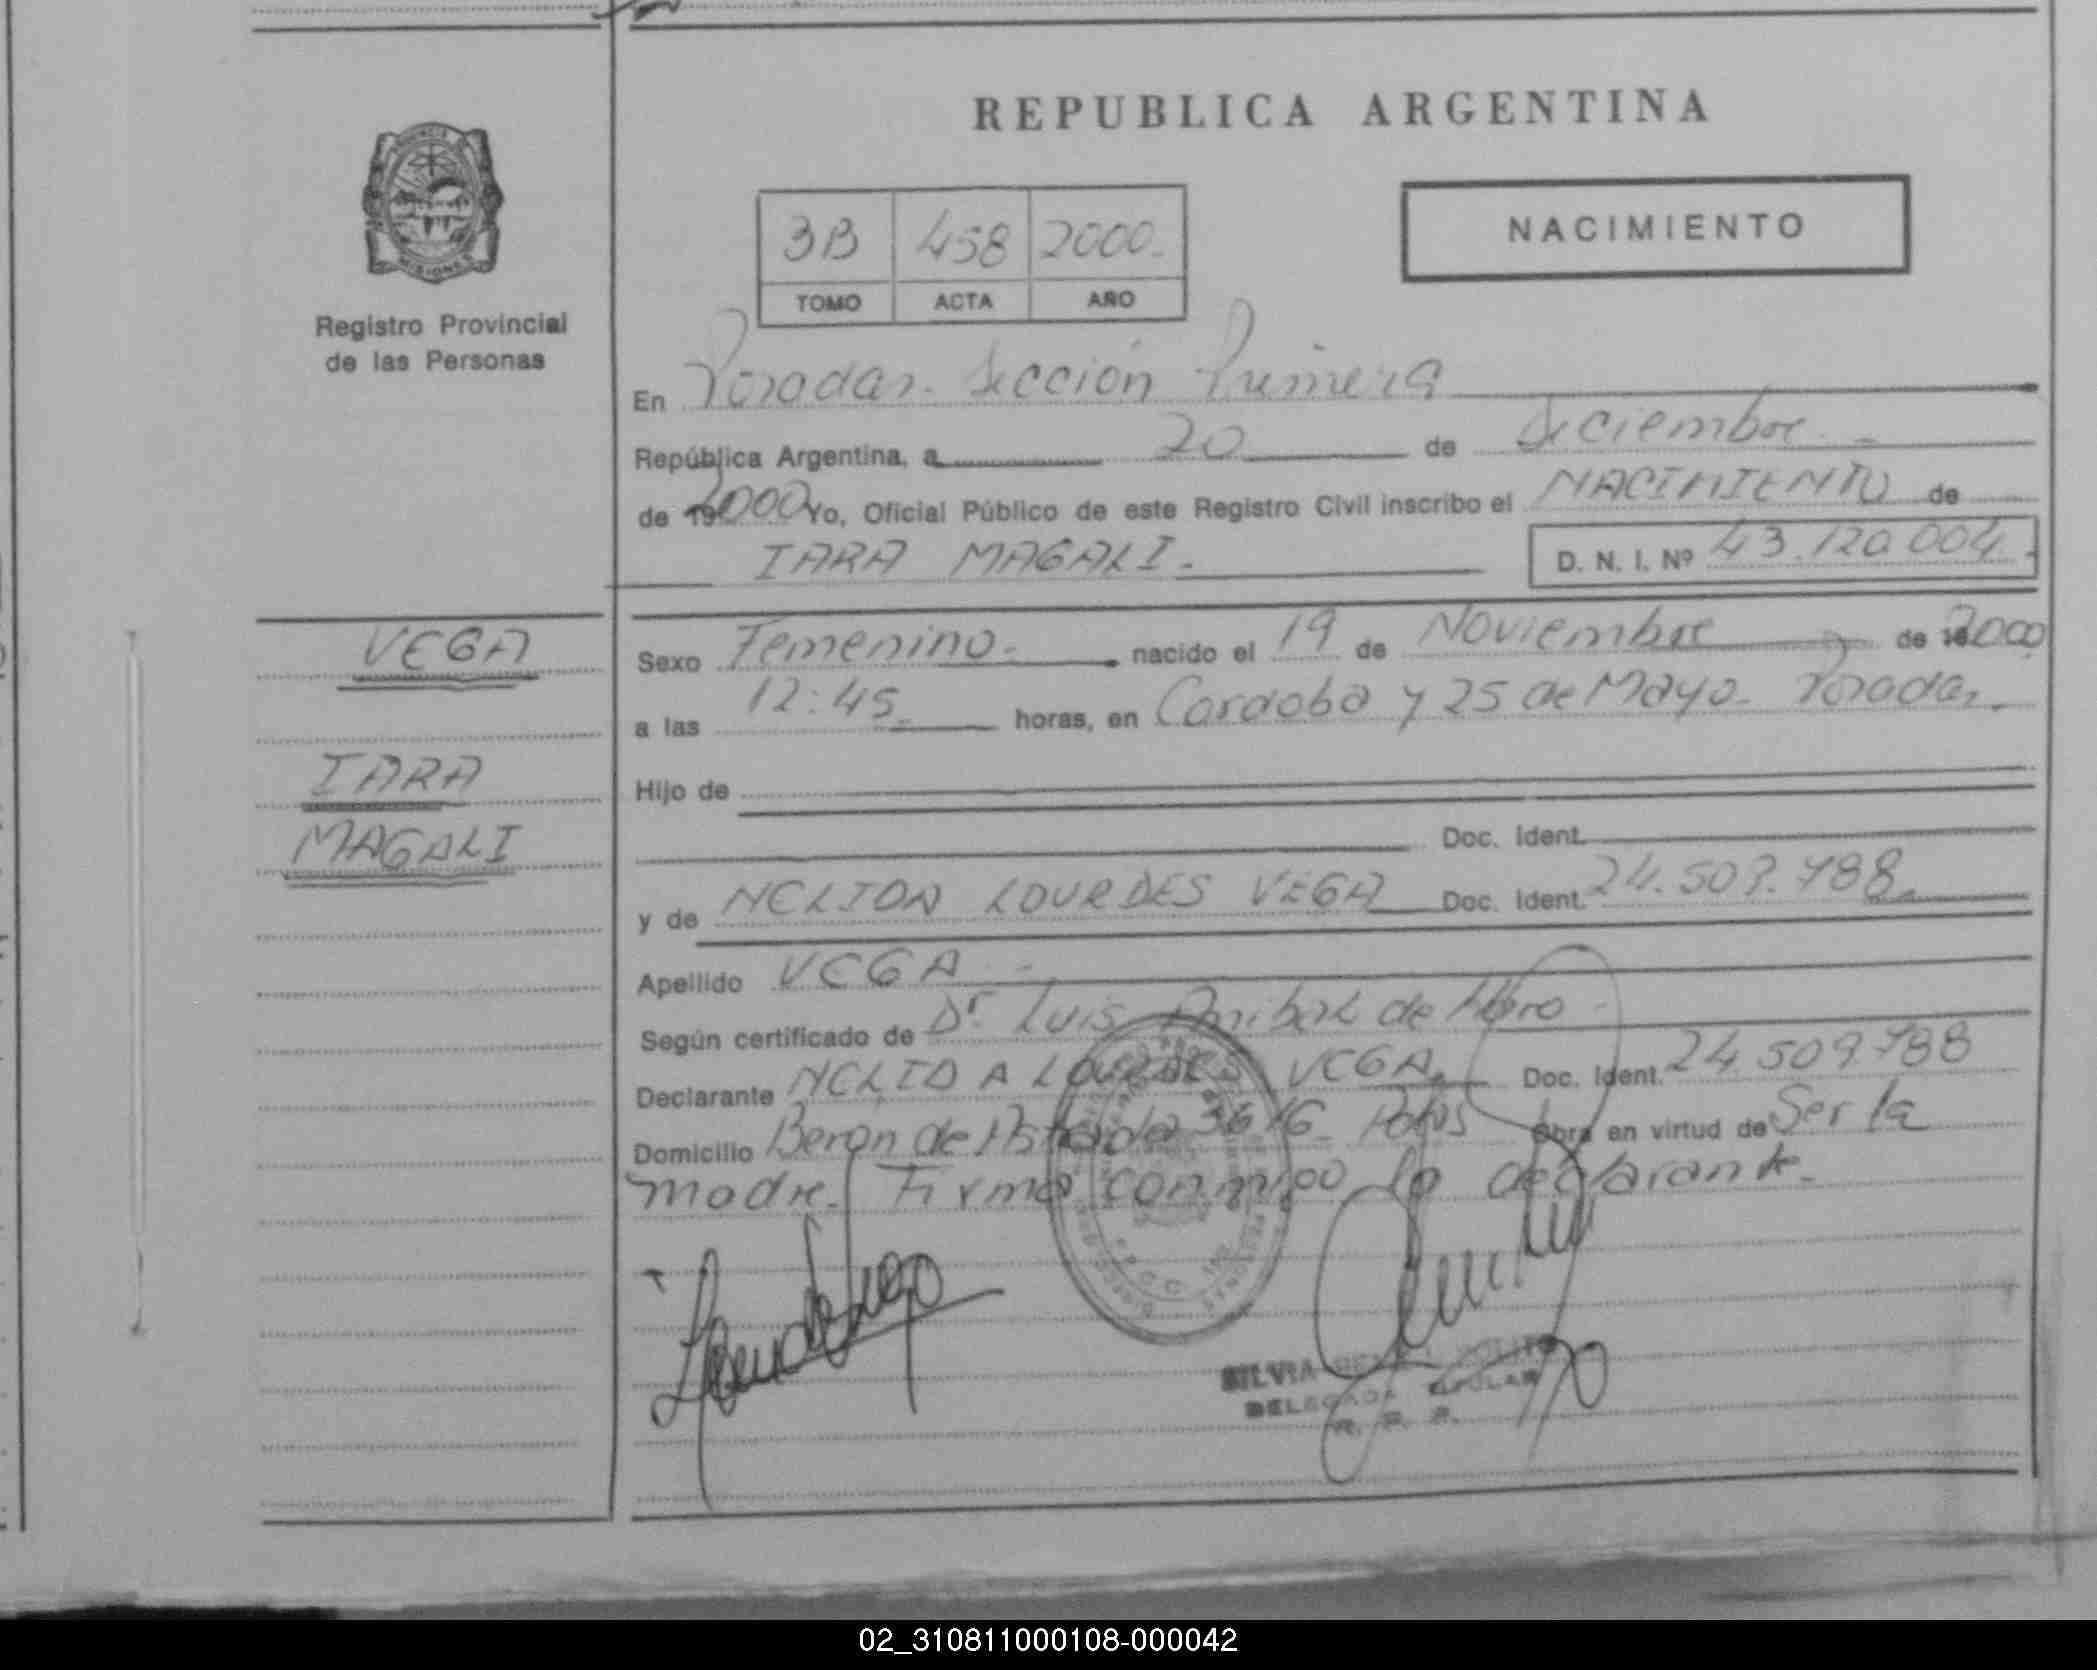 REPUBLICA ARGENTINA
NACIMIENTO
3B 458 2000.
TOMO ACTA AÑO
MISIONES
Registro Provincial
de las Personas
En Posadas. Sección Primera
República Argentina, a 20 de diciembre.
de 19 2000 Yo, Oficial Público de este Registro Civil inscribo el NACIMIENTO de
IARA MAGALI.
D. N. I. Nº 43.120.004.
VEGA
IARA
MAGALI
Sexo Femenino. nacido el 19 de Noviembre de 19 2000
a las 12:45. horas, en Cordoba y 25 de Mayo. Posadas.
Hijo de
Doc. Ident.
y de NELIDA LOURDES VEGA Doc. Ident. 24.509.788.
Apellido VEGA.-
Según certificado de Dr. Luis Anibal de
Declarante NELIDA LOURDES VEGA. Doc. Ident. 24.509.788
Domicilio Beron de Astrada 3616 Obra en virtud de Ser la
madre. Firma conmigo la declarante.
SILVIA
DELEGADA TITULAR
R. P. P.
02_310811000108-000042